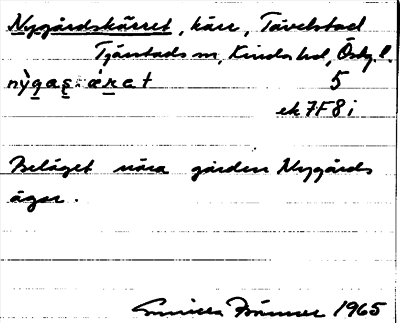 Nygårdskärret, kärr, Tåvelstad
Tjärstads sn, Kinds hd, Östg.l.
5
ek 7F8i
Beläget nära gården Nygårds
ägor.
Brunner 1965